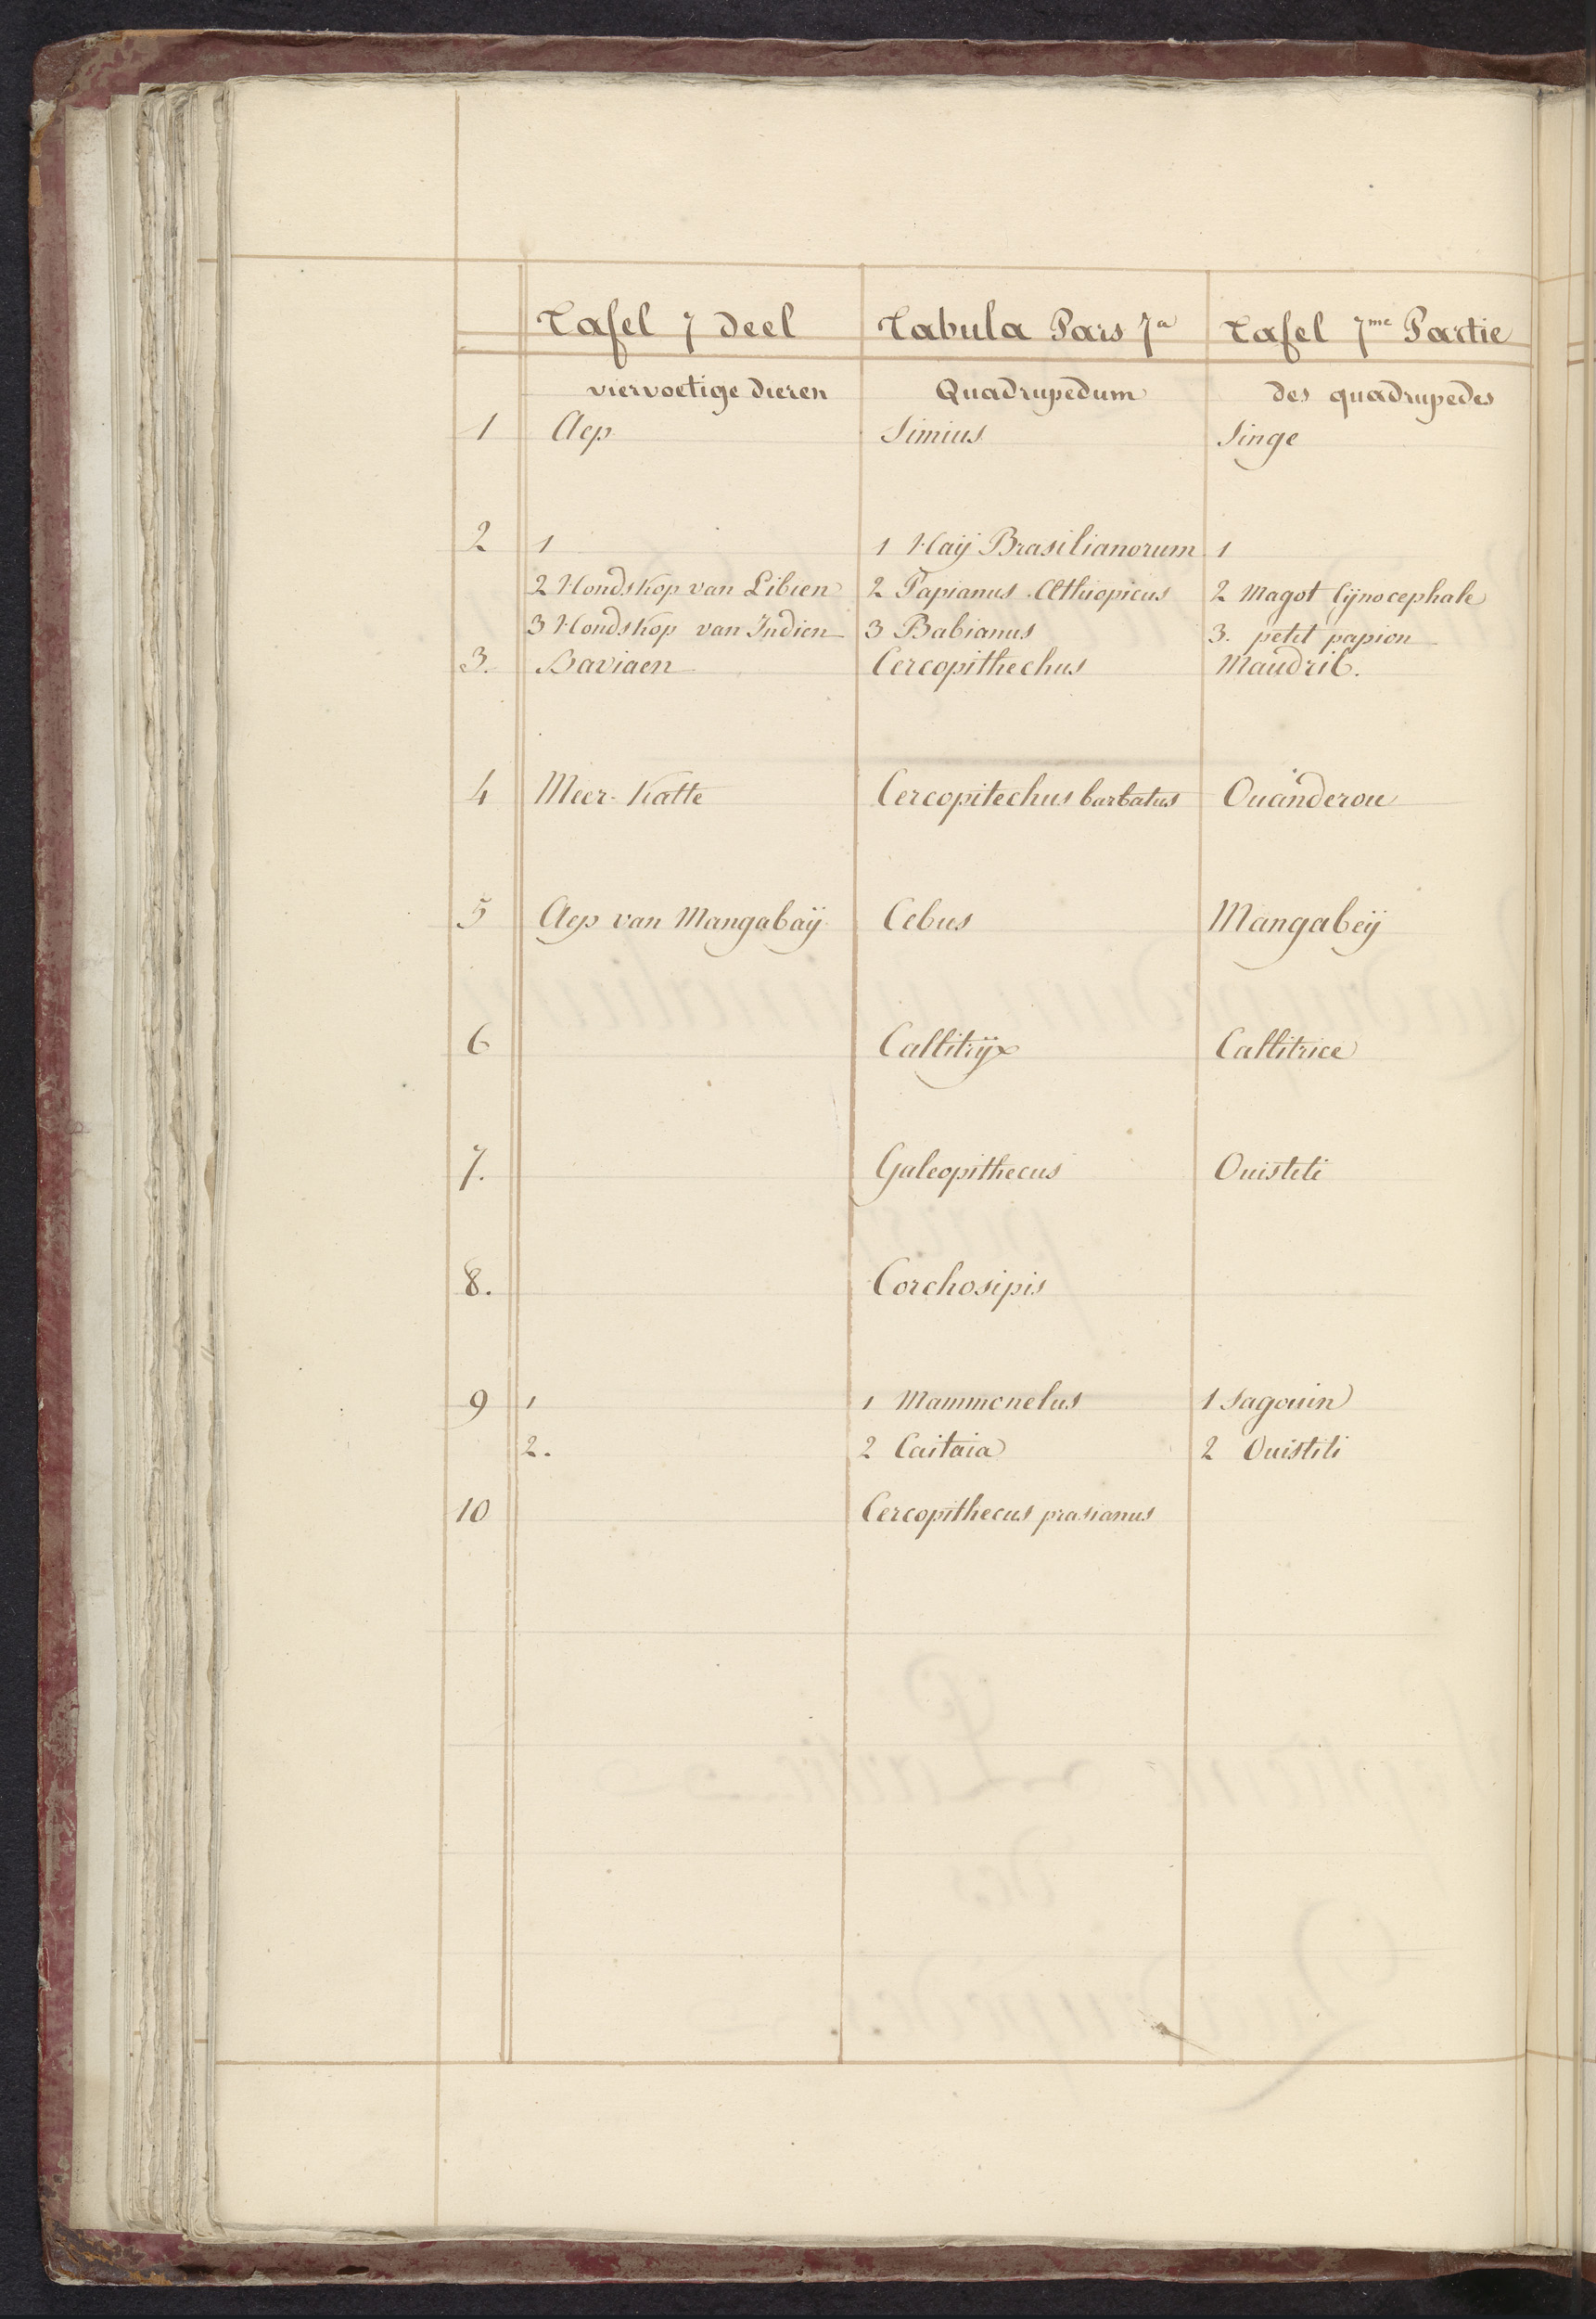 Tafel 7 deel Tabula Pars 7a Tafel 7me Partie
viervoetige dieren Quadrupedum des quadrupedes
1 Aep Simius Singe
2 1 1 Haij Brasilianorum 1
2 Hondskop van Libien 2 Papianus Æthiopicus 2 Magot Cijnocephale
3 Hondskop van Indien 3 Babianus 3. petit papion
3. Baviaen Cercopithechus Maudril.
4 Meer-Katte Cercopitechus barbatus Ouanderou
5 Aep van Mangabaÿ Cebus Mangabeÿ
6 Callitrijx Callitrice
7. Galeopithecus Ouistiti
8. Corchosipis
9 1 1 Mammonelus 1 Sagouin
2. 2 Caitaia 2 Ouistiti
10 Cercopithecus prasianus